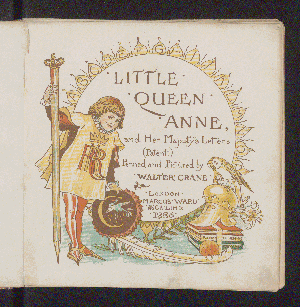 LITTLE
QUEEN
ANNE,
and Her Majesty's Letters
(Patent)
Penned and Pictured by
WALTER CRANE
LONDON
MARCUS WARD
& CO. LIMD
1886